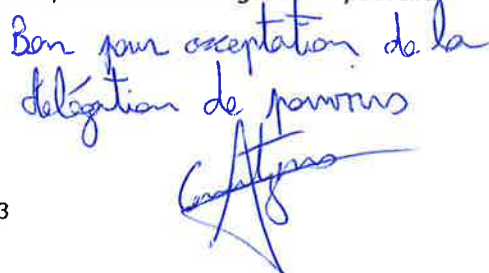 Bon pour acceptation de la
délégation de pouvoirs
3